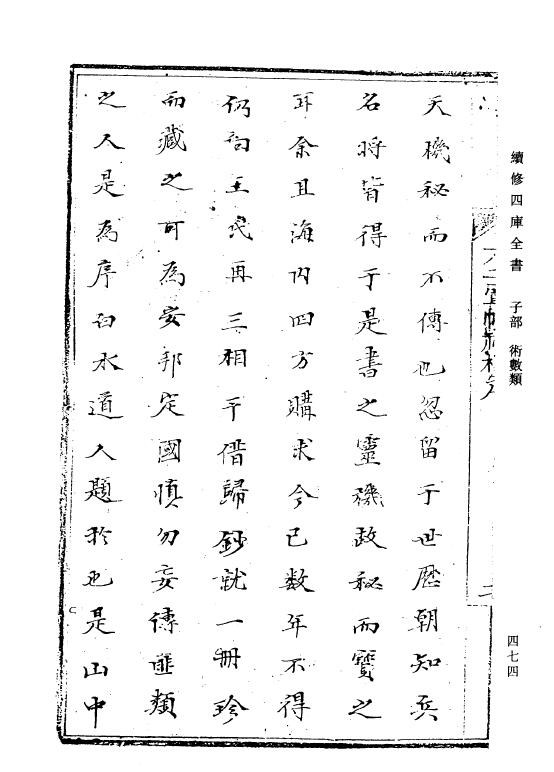 續修四庫全書 子部 術數類
四七四
天機秘而不傳也忽留于世歷朝知兵
名將皆得于是書之靈機故秘而寶之
耳余且海內四方購求今已数年不得
仍向王氏再三相予借歸鈔就一冊珍
而藏之可為安邦定國慎勿妄傳匪類
之人是為序白水道人題於也是山中